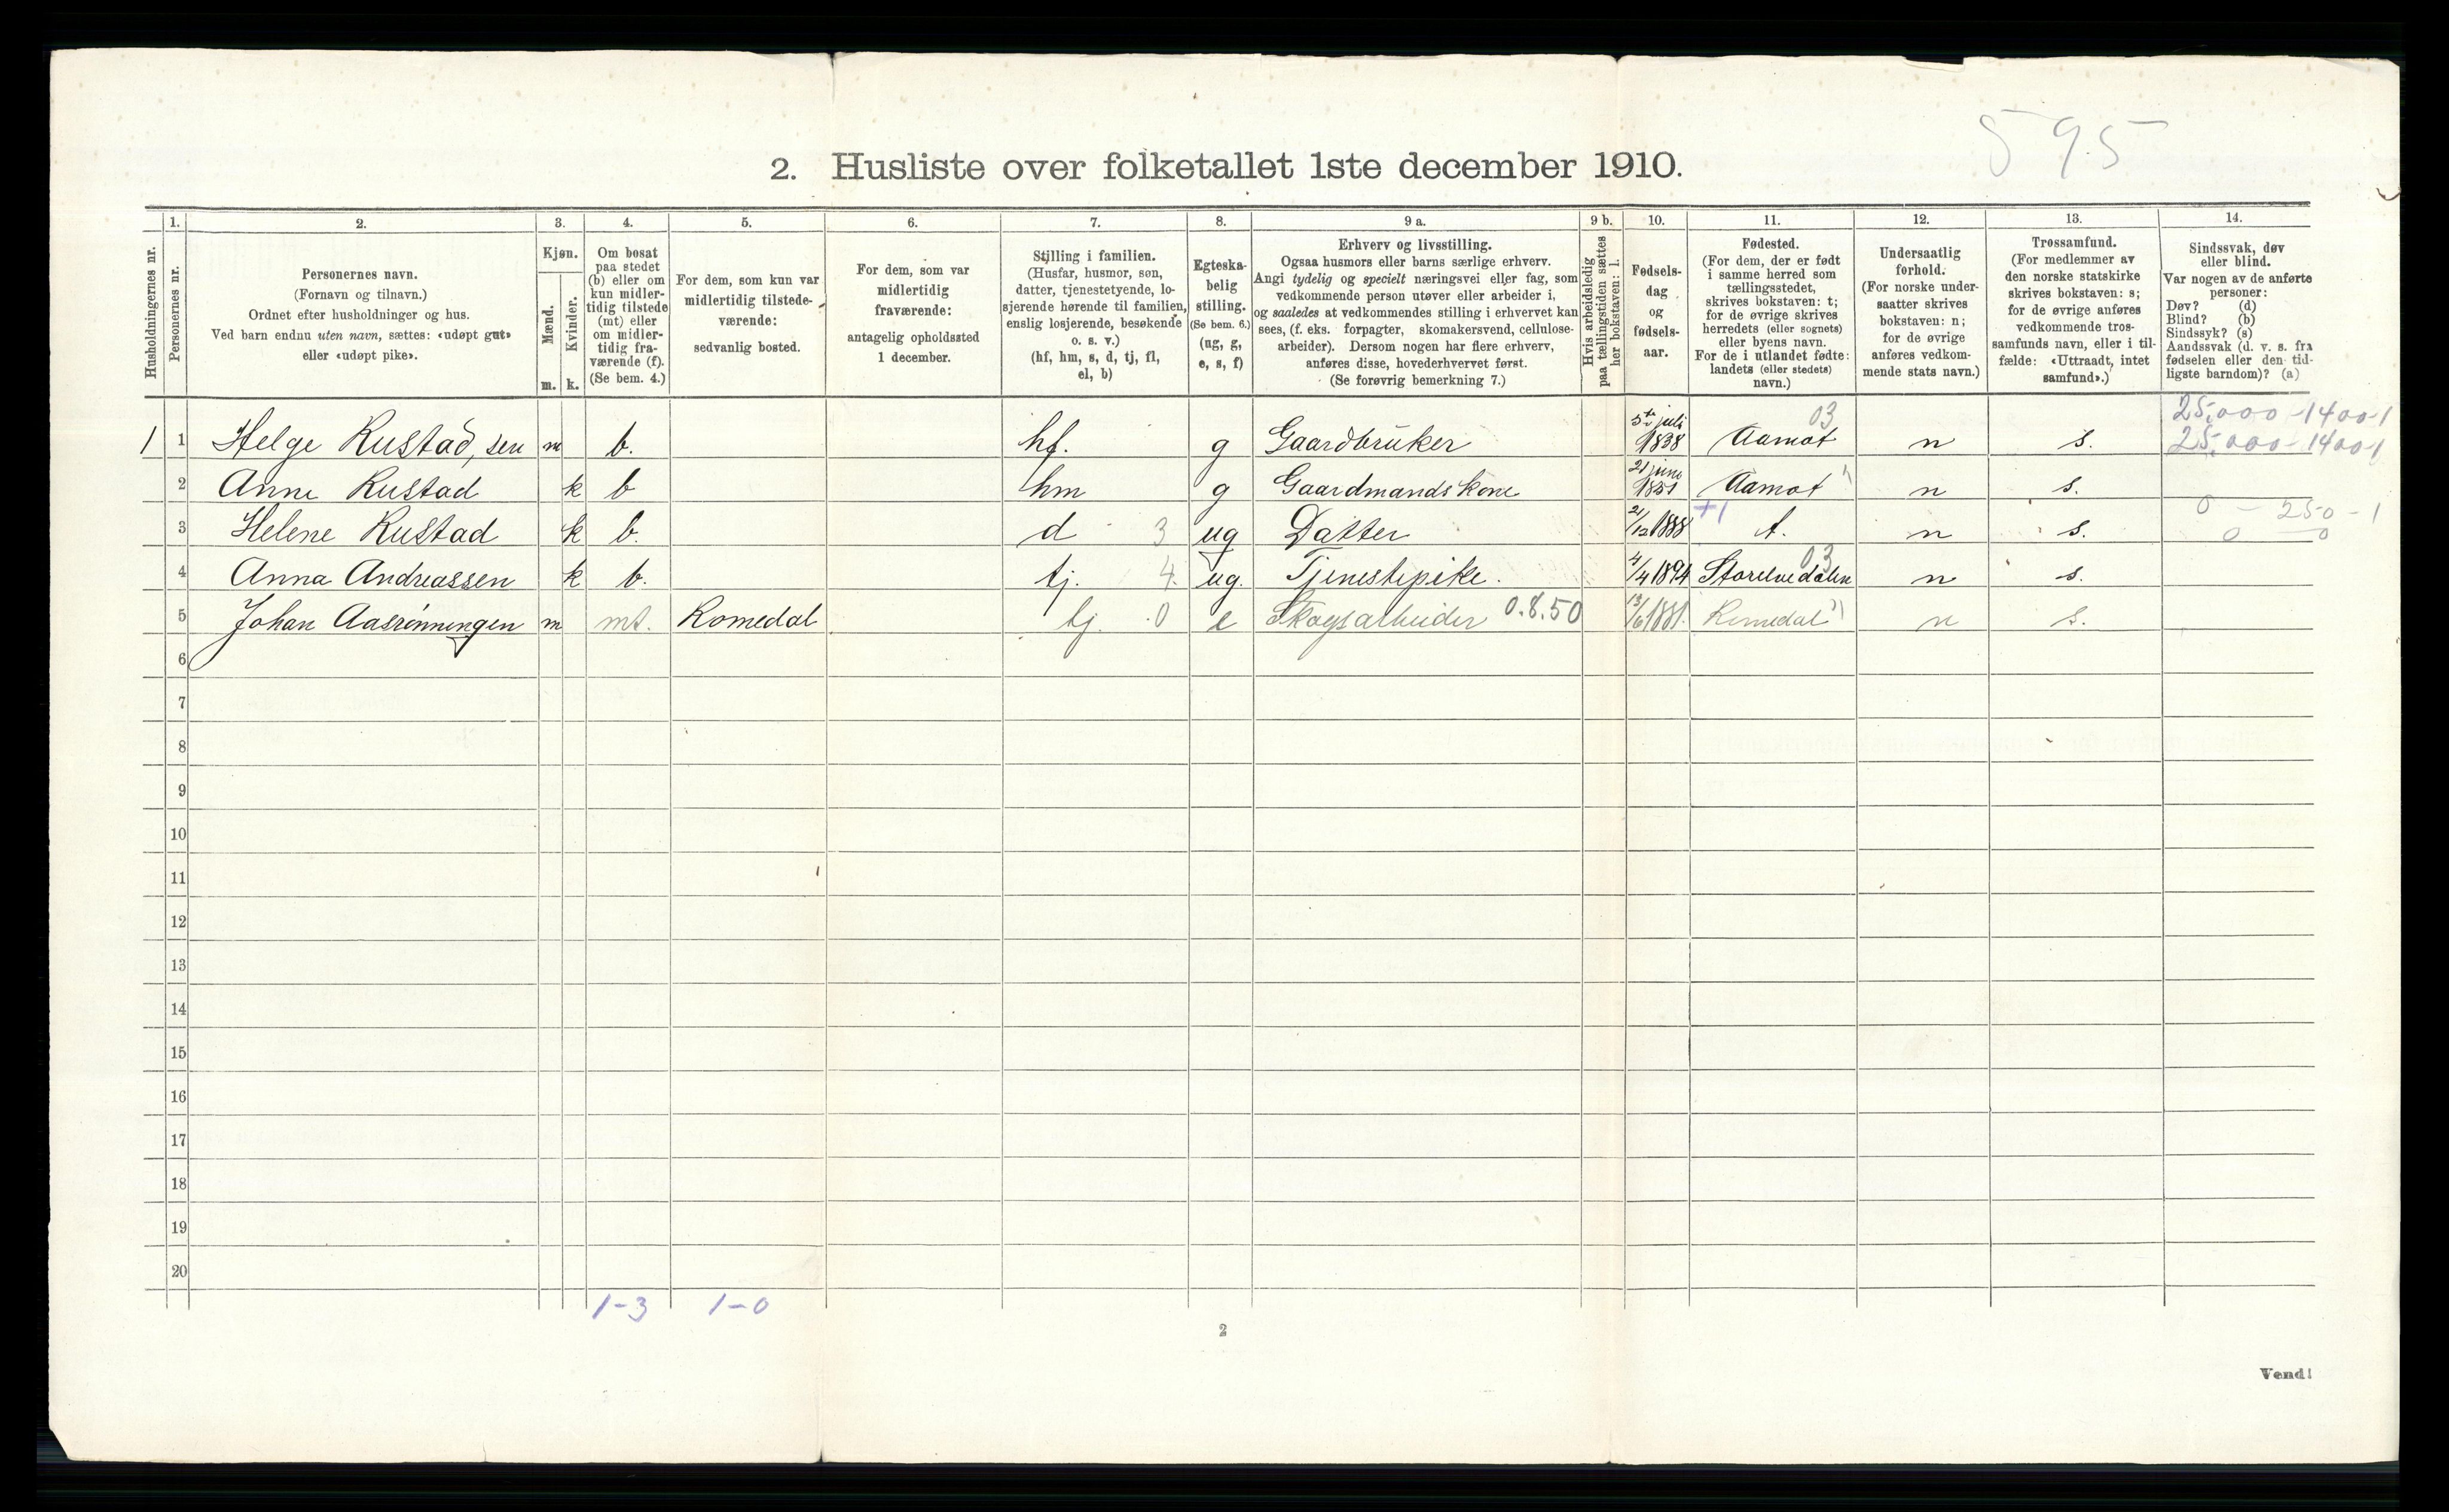 595
2. Husliste over folketallet 1ste december 1910.
Husholdningernes nr.
1.
Personernes nr.
2.
Personernes navn.
(Fornavn og tilnavn.)
Ordnet efter husholdninger og hus.
Ved barn endnu uten navn, sættes: «udøpt gut»
eller «udøpt pike».
3.
Kjøn.
Mænd.
Kvinder.
m. k.
4.
Om bosat
paa stedet
(b) eller om
kun midler-
tidig tilstede
(mt) eller
om midler-
tidig fra-
værende (f).
(Se bem. 4.)
5.
For dem, som kun var
midlertidig tilstede-
værende:
sedvanlig bosted.
6.
For dem, som var
midlertidig
fraværende:
antagelig opholdssted
1 december.
7.
Stilling i familien.
(Husfar, husmor, søn,
datter, tjenestetyende, lo-
sjerende hørende til familien,
enslig losjerende, besøkende
o. s. v.)
(hf, hm, s, d, tj, fl,
el, b)
8.
Egteska-
belig
stilling.
(Se bem. 6.)
(ug, g,
e, s, f)
9 a.
Erhverv og livsstilling.
Ogsaa husmors eller barns særlige erhverv.
Angi tydelig og specielt næringsvei eller fag, som
vedkommende person utøver eller arbeider i,
og saaledes at vedkommendes stilling i erhvervet kan
sees, (f. eks. forpagter, skomakersvend, cellulose-
arbeider). Dersom nogen har flere erhverv,
anføres disse, hovederhvervet først.
(Se forøvrig bemerkning 7.)
9 b.
Hvis arbeidsledig
paa tællingstiden sættes
her bokstaven: l.
10.
Fødsels-
dag
og
fødsels-
aar.
11.
Fødested.
(For dem, der er født
i samme herred som
tællingsstedet,
skrives bokstaven: t;
for de øvrige skrives
herredets (eller sognets)
eller byens navn.
For de i utlandet fødte:
landets (eller stedets)
navn.)
12.
Undersaatlig
forhold.
(For norske under-
saatter skrives
bokstaven: n;
for de øvrige
anføres vedkom-
mende stats navn.)
13.
Trossamfund.
(For medlemmer av
den norske statskirke
skrives bokstaven: s;
for de øvrige anføres
vedkommende tros-
samfunds navn, eller i til-
fælde: «Uttraadt, intet
samfund».)
14.
Sindssvak, døv
eller blind.
Var nogen av de anførte
personer:
Døv? (d)
Blind? (b)
Sindssyk? (s)
Aandssvak (d. v. s. fra
fødselen eller den tid-
ligste barndom)? (a)
03 25,000-1400-1
1 1 Helge Rustad, sen m b. hf. g Gaardbruker 5te juli 1838 Aamot n s. 25,000-1400-1
2 Anne Rustad k b hm g Gaardmandskone 21 juni 1851 Aamot " n s.
+1 0 - 250-1
3 Helene Rustad k b. d 3 ug Datter 21/12 1888 t. n s. 0 - 0
03
4 Anna Andreassen k b. tj. 4. ug. Tjenestepike. 4/4 1894 Storelvedalen n s.
5 Johan Aasrønningen m mt. Romedal tj. 0 e Skogsarbeider 0.8.50 13/6 1881. Romedal " n s.
6
7
8
9
10
11
12
13
14
15
16
17
18
19
20
1-3 1-0
2
Vend!